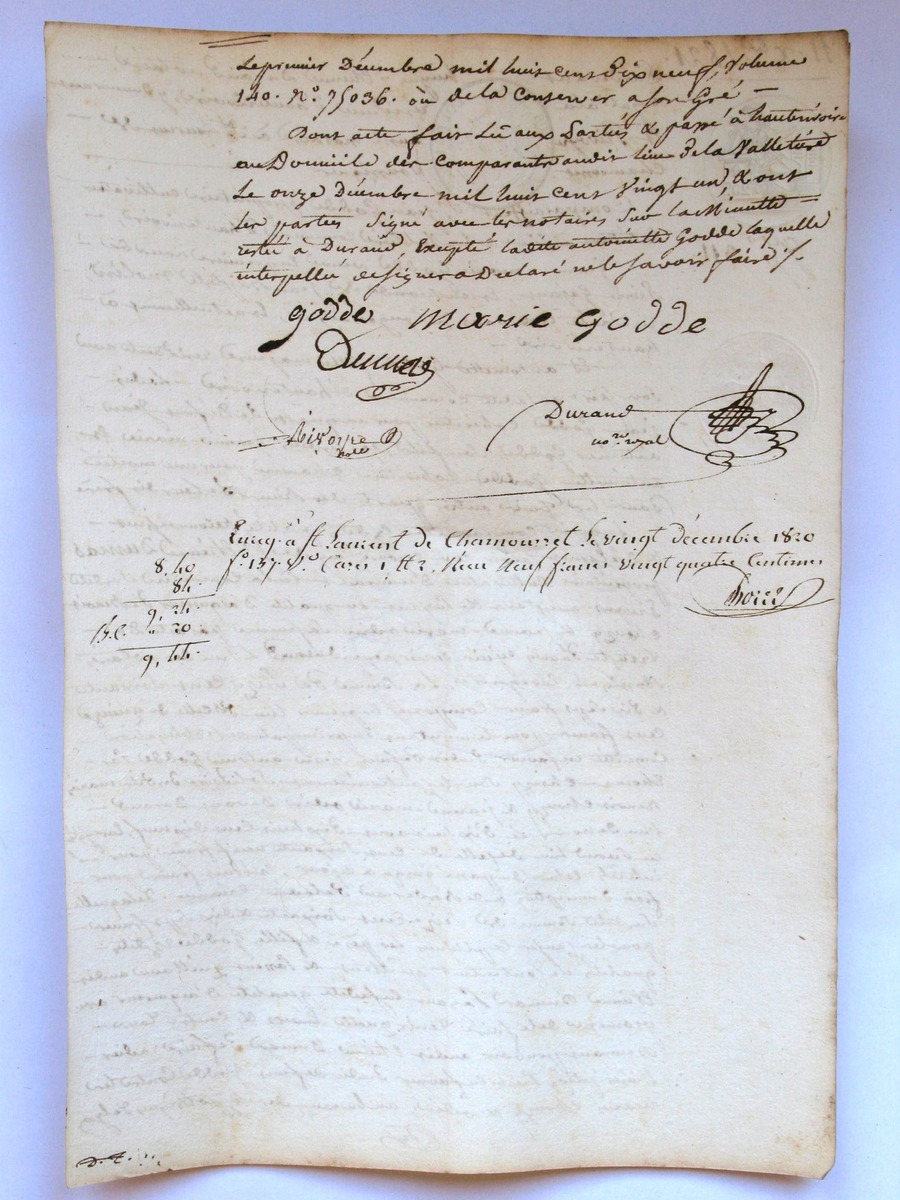 Le premier Décembre mil huit cent Dix neuf, Volume
140. N°. 75036. ou de la Conserver a son Gré —
Dont acte fait Lu aux Parties & passé à hauterivoire
au Domicile des Comparants audit lieu de la Valletière
Le onze Décembre mil huit cent Vingt un, & ont
les parties Signé avec les notaires Sur la Minutte
restée à Durand, Excepté ladite antoinette Godde laquelle
interpellée de Signer a Declaré ne le Savoir faire ./.
godde marie godde
Durand
no.re royal
Enreg. à St Laurent de Chamousset Le vingt décembre 1820
f.° 137. V.° Cases 1 Reçu Neuf francs Vingt quatre Centimes
8. 40
84.
9, 24.
20
9, 44.